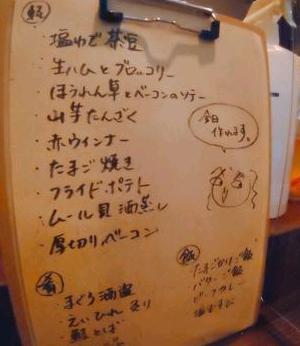 軽
・塩ゆで茶豆
・生ハムとブロッコリー
・ほうれん草とベーコンのソテー
・山芋たんざく
・赤ウインナー
・たまご焼き
・フライドポテト
・ムール貝酒蒸し
・厚切りベーコン
今日
作れます。
肴
・まぐろ酒盗
・えいひれ炙り
・鮭とば
飯
・たまごかけご飯
・バターご飯
・ビーフカレー